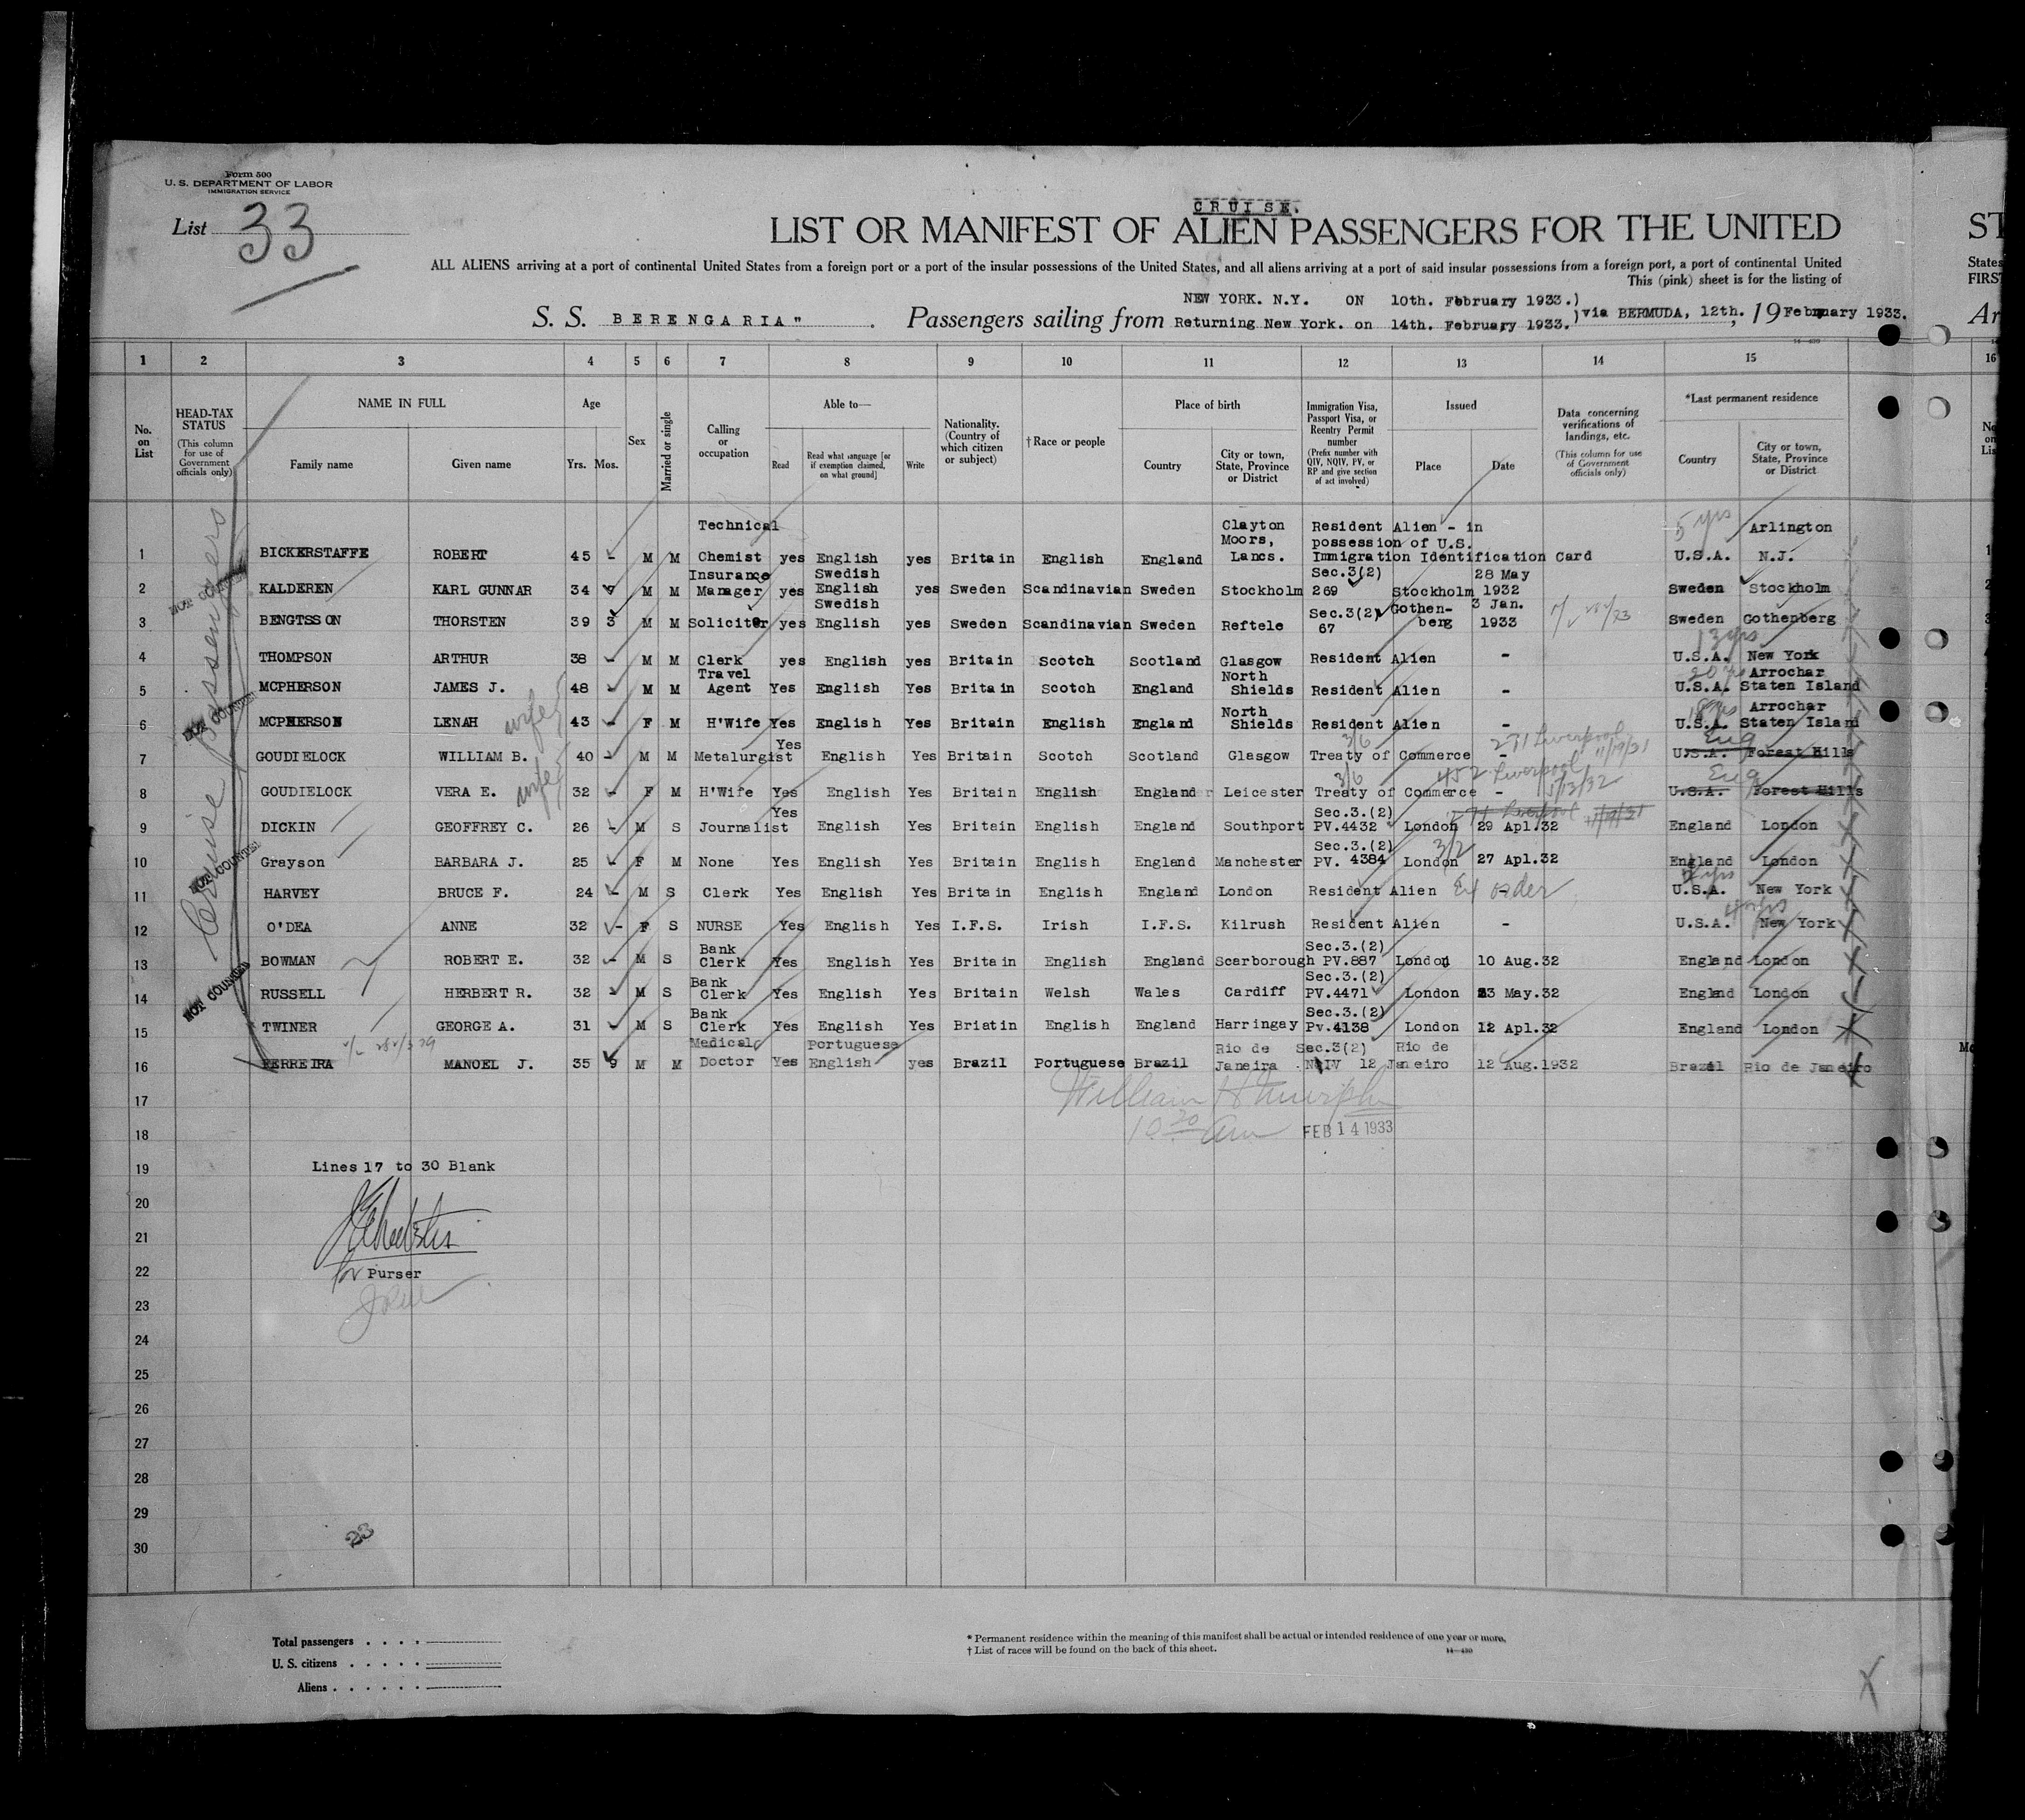 Form 500
U. S. DEPARTMENT OF LABOR
IMMIGRATION SERVICE
List 33
CRUISE.
LIST OR MANIFEST OF ALIEN PASSENGERS FOR THE UNITED
ST
ALL ALIENS arriving at a port of continental United States from a foreign port or a port of the insular possessions of the United States, and all aliens arriving at a port of said insular possessions from a foreign port, a port of continental United
States
This (pink) sheet is for the listing of
FIRST
NEW YORK. N.Y. ON 10th. February 1933.)
S. S. BERENGARIA" . Passengers sailing from Returning New York. on 14th. February 1933. ) via BERMUDA, 12th. , 19 February 1933.
Ar
1 2 3 4 5 6 7 8 9 10 11 12 13 14 15 16
No. on List
HEAD-TAX STATUS (This column for use of Government officials only)
NAME IN FULL
Family name Given name
Age
Yrs. Mos.
Sex
Married or single
Calling or occupation
Able to—
Read
Read what language [or if exemption claimed, on what ground]
Write
Nationality. (Country of which citizen or subject)
† Race or people
Place of birth
Country
City or town, State, Province or District
Immigration Visa, Passport Visa, or Reentry Permit number (Prefix number with QIV, NQIV, PV, or RP and give section of act involved)
Issued
Place Date
Data concerning verifications of landings, etc. (This column for use of Government officials only)
*Last permanent residence
Country
City or town, State, Province or District
Cruise Passengers
NOT COUNTED
NOT COUNTED
NOT COUNTED
NOT COUNTED
Technical Clayton Resident Alien - in 5 yrs Arlington
Moors, possession of U.S.
1 BICKERSTAFFE ROBERT 45 - M M Chemist yes English yes Britain English England Lancs. Immigration Identification Card U.S.A. N.J.
Insurance Swedish Sec.3(2) 28 May
2 KALDEREN KARL GUNNAR 34 9 M M Manager yes English yes Sweden Scandinavian Sweden Stockholm 269 Stockholm 1932 Sweden Stockholm
Swedish Sec.3(2) Gothen- 3 Jan.
3 BENGTSSON THORSTEN 39 3 M M Solicitor yes English yes Sweden Scandinavian Sweden Reftele 67 berg 1933 Sweden Gothenberg
13 yrs
4 THOMPSON ARTHUR 38 - M M Clerk yes English yes Britain Scotch Scotland Glasgow Resident Alien - U.S.A. New York
Travel North 20 yrs Arrochar
5 MCPHERSON JAMES J. 48 - M M Agent Yes English Yes Britain Scotch England Shields Resident Alien - U.S.A. Staten Island
wife North 18 yrs Arrochar
6 MCPHERSON LENAH 43 - F M H'Wife Yes English Yes Britain English England Shields Resident Alien - U.S.A. Staten Island
Yes 3/6 271 Liverpool 11/19/31 Eng
7 GOUDIELOCK WILLIAM B. 40 - M M Metalurgist English Yes Britain Scotch Scotland Glasgow Treaty of Commerce - U.S.A. Forest Hills
wife 3/6 452 Liverpool 5/13/32 Eng
8 GOUDIELOCK VERA E. 32 - F M H'Wife Yes English Yes Britain English England Leicester Treaty of Commerce - U.S.A. Forest Hills
Yes Sec.3.(2)
9 DICKIN GEOFFREY C. 26 - M S Journalist English Yes Britain English England Southport PV.4432 London 29 Apl.32 England London
Sec.3.(2) 3/2
10 Grayson BARBARA J. 25 - F M None Yes English Yes Britain English England Manchester PV. 4384 London 27 Apl.32 England London
11 HARVEY BRUCE F. 24 - M S Clerk Yes English Yes Britain English England London Resident Alien - Ex order U.S.A. New York
12 O'DEA ANNE 32 - F S NURSE Yes English Yes I.F.S. Irish I.F.S. Kilrush Resident Alien - U.S.A. New York
Bank Sec.3.(2)
13 BOWMAN ROBERT E. 32 - M S Clerk Yes English Yes Britain English England Scarborough PV.887 London 10 Aug.32 England London
Bank Sec.3.(2)
14 RUSSELL HERBERT R. 32 - M S Clerk Yes English Yes Britain Welsh Wales Cardiff PV.4471 London 23 May.32 England London
Bank Sec.3.(2)
15 TWINER GEORGE A. 31 - M S Clerk Yes English Yes Briatin English England Harringay Pv.4138 London 12 Apl.32 England London
Medical Portuguese Rio de Sec.3(2) Rio de
16 FERREIRA MANOEL J. 35 9 M M Doctor Yes English yes Brazil Portuguese Brazil Janeira NQIV 12 Janeiro 12 Aug.1932 Brazil Rio de Janeiro
17 William H Murphy
18 10 30 am FEB 14 1933
19 Lines 17 to 30 Blank
20
21
22 for Purser
23
24
25
26
27
28
29
23
30
Total passengers . . . .
U. S. citizens . . . . .
Aliens . . . . . .
* Permanent residence within the meaning of this manifest shall be actual or intended residence of one year or more.
† List of races will be found on the back of this sheet.
14—430
X